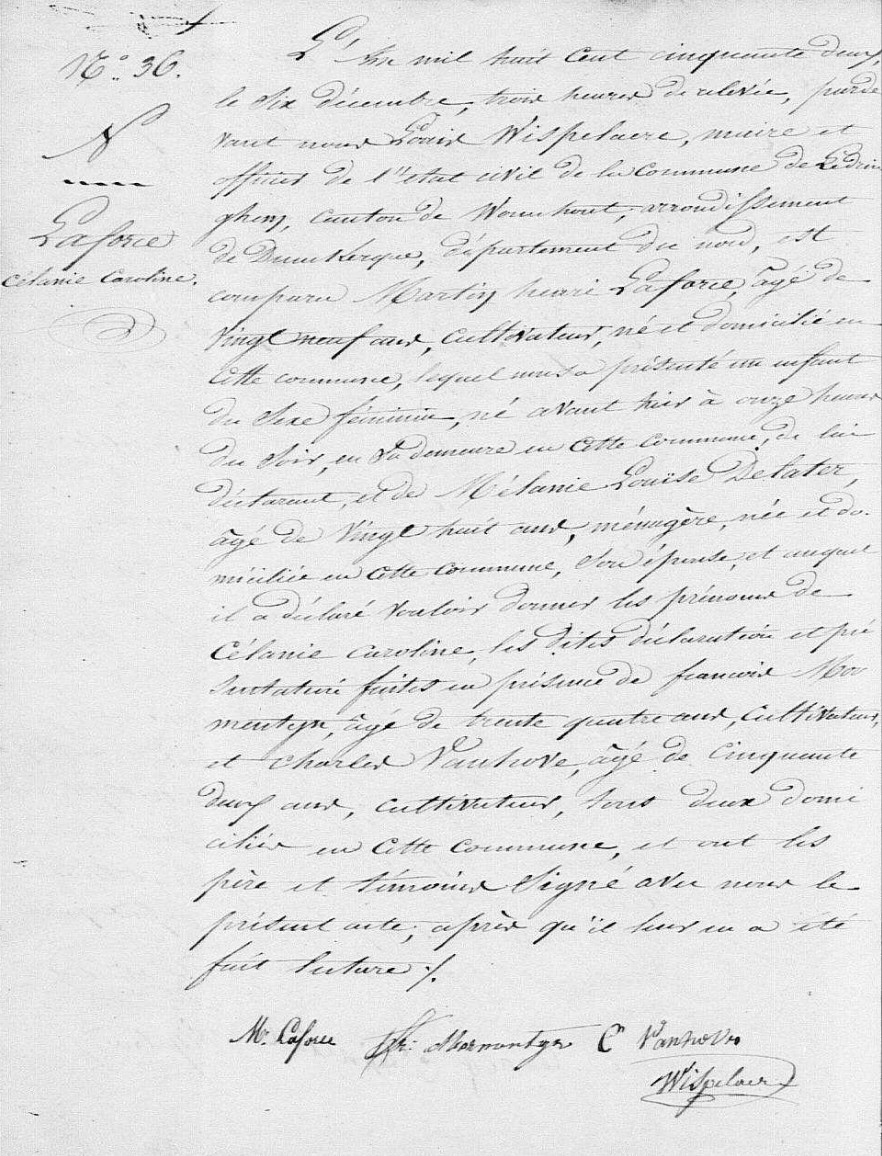 N.° 36.
N
Laforce
Célanie Caroline.
L'An mil huit cent cinquante deux,
le six décembre, trois heures de relevée, parde
vant nous Louis Wispelaere, maire et
officier de l'état civil de la commune de Lédrin
ghem, canton de Wormhout, arrondissement
de Dunkerque, département du nord, est
comparu Martin henri Laforce, âgé de
vingt neuf ans, cultivateur, né et domicilié en
cette commune, lequel nous a présenté un enfant
du sexe féminin, né avant hier à onze heures
du soir, en sa demeure en cette commune, de lui
déclarant, et de Mélanie Louïse Delater,
âgé de vingt huit ans, ménagère, née et do-
miciliée en cette commune, son épouse, et auquel
il a déclaré vouloir donner les prénoms de
Célanie Caroline, les dites déclaration et pré
sentature faites en présence de francois Mor
mentyn, âgé de trente quatre ans, cultivateur,
et charles Vanhove, âgé de cinquante
deux ans, cultivateur, tous deux domi
ciliés en cette commune, et ont les
père et témoins signé avec nous le
présent acte, après qu'il leur en a été
fait lecture ./.
M. Laforce fr: Mormentyn C Vanhove
Wispelaere